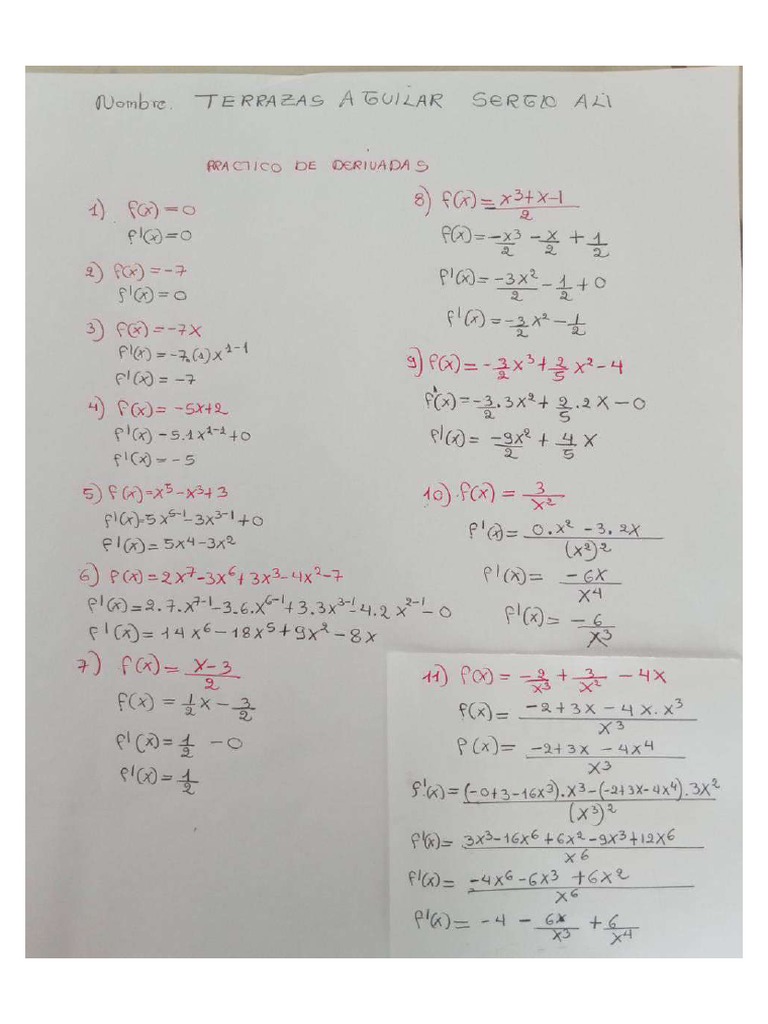 Nombre. TERRAZAS AGUILAR SERGIO ALI
PRACTICO DE DERIVADAS
1) f(x) = 0
f'(x) = 0
2) f(x) = -7
f'(x) = 0
3) f(x) = -7x
f'(x) = -7.(1)x^1-1
f'(x) = -7
4) f(x) = -5x+2
f'(x) - 5.1x^1-1+0
f'(x) = -5
5) f(x)=x⁵-x³+3
f'(x)=5x^5-1-3x^3-1+0
f'(x) = 5x⁴-3x²
6) f(x)=2x⁷-3x⁶+3x³-4x²-7
f'(x)=2.7.x^7-1-3.6.x^6-1+3.3x^3-1 4.2x^2-1-0
f'(x)=14x⁶-18x⁵+9x²-8x
7) f(x)= x-3/2
f(x)= 1/2 x - 3/2
f'(x)= 1/2 - 0
f'(x)= 1/2
8) f(x)= x³+x-1/2
f(x)= -x³/2 - x/2 + 1/2
f'(x)= -3x²/2 - 1/2 + 0
f'(x)= -3/2 x² - 1/2
9) f(x)= -3/2 x³ + 2/5 x² - 4
f'(x)= -3/2 . 3x² + 2/5 . 2x - 0
f'(x)= -9x²/2 + 4/5 x
10) f(x) = 3/x²
f'(x)= 0.x² - 3.2x/(x²)²
f'(x)= -6x/x⁴
f'(x)= -6/x³
11) f(x) = -2/x³ + 3/x² - 4x
f(x)= -2+3x-4x.x³/x³
f(x)= -2+3x-4x⁴/x³
f'(x)= (-0+3-16x³).x³-(-2+3x-4x⁴).3x²/(x³)²
f'(x)= 3x³-16x⁶+6x²-9x³+12x⁶/x⁶
f'(x)= -4x⁶-6x³+6x²/x⁶
f'(x)= -4 - 6x/x³ + 6/x⁴